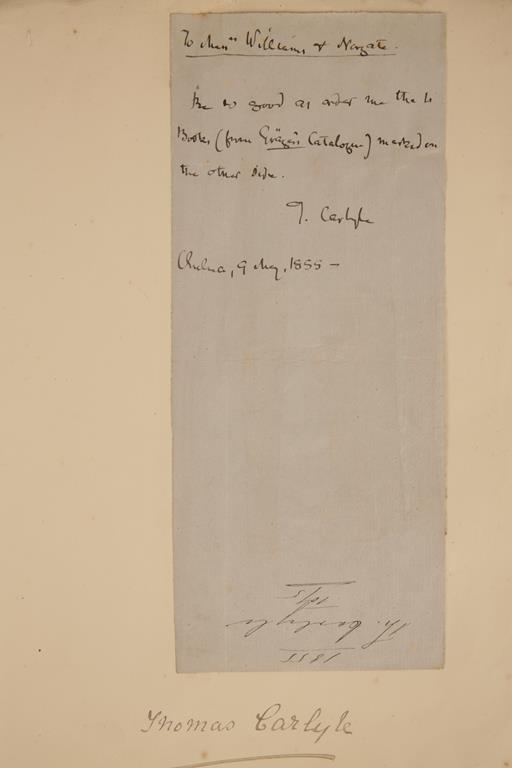 To Messrs Williams & Norgate.
Be so good as order me the 11
Books (from Gräger's Catalogue) marked on
the other side.
T. Carlyle
Chelsea, 9 May, 1855 —
1855
Th. Carlyle
10/5
Thomas Carlyle